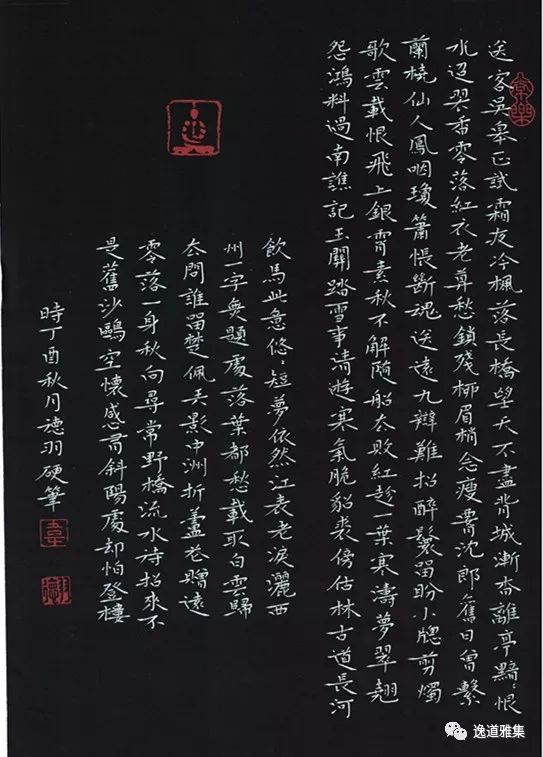 送客吳皋正試霜夜冷楓落長橋望天不盡背城漸杳離亭黯、恨
水迢翠香零落紅衣老暮愁鎖殘柳眉梢念瘦腰沈郎舊日曾繫
蘭橈仙人鳳咽瓊簫悵斷魂送遠九辯難招醉鬟留盼小牕剪燭
歌雲載恨飛上銀霄素秋不解隨船去敗紅趁一葉寒濤夢翠翹
怨鴻料過南譙記玉關踏雪事清遊寒氣脆貂裘傍枯林古道長河
飲馬此意悠、短夢依然江表老淚灑西
州一字無題處落葉都愁載取白雲歸
去問誰留楚佩弄影中洲折蘆花贈遠
零落一身秋向尋常野橋流水待招來不
是舊沙鷗空懷感有斜陽處却怕登樓
時丁酉秋月德羽硬筆
逸道雅集